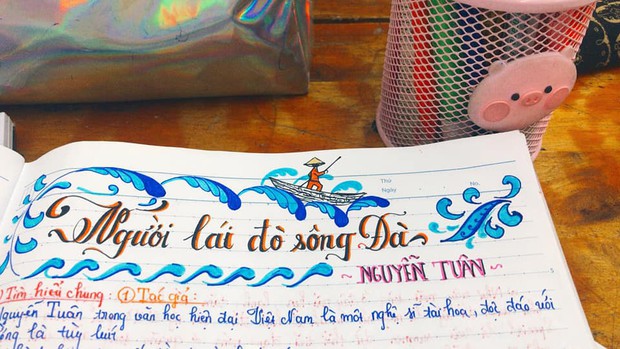 Thứ
Ngày
No.
Người lái đò sông Đà
~ NGUYỄN TUÂN ~
) Tìm hiểu chung: ① Tác giả:
Nguyễn Tuân trong văn học hiện đại Việt Nam là một nghệ sĩ tài hoa, độc đáo với
là tùy bút